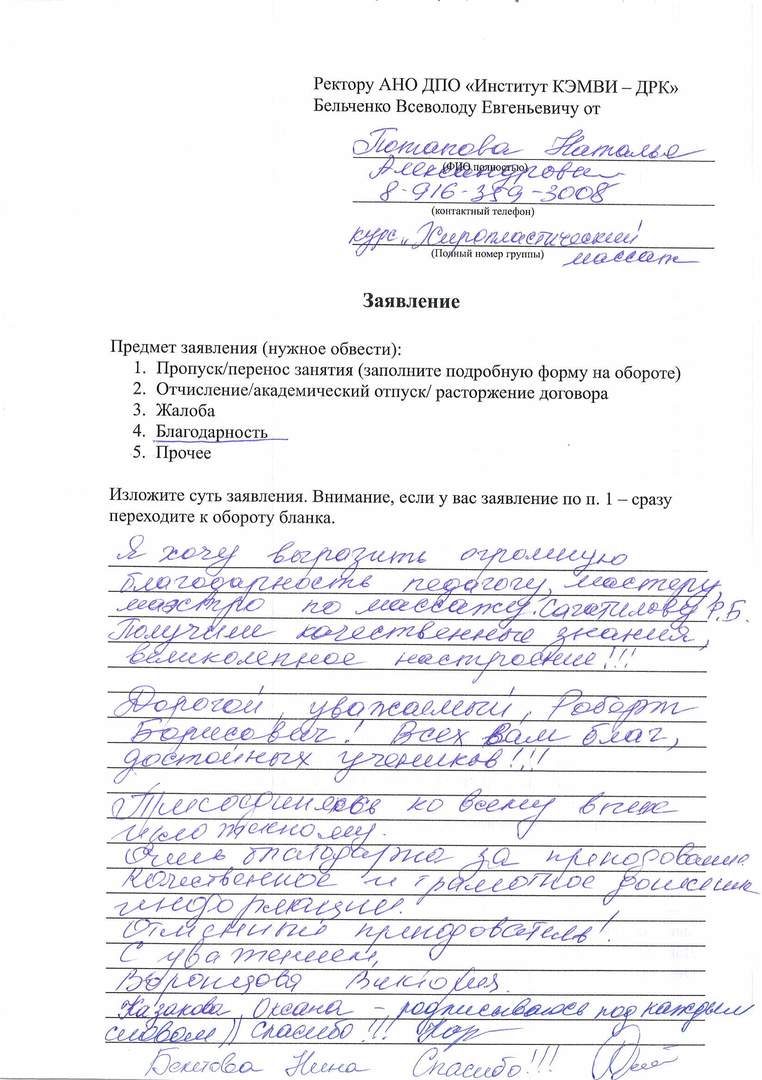 Ректору АНО ДПО «Институт КЭМВИ – ДРК»
Бельченко Всеволоду Евгеньевичу от
Потапова Наталья
(ФИО полностью)
Александровн
8-916-359-3008
(контактный телефон)
курс „Хиропластический
(Полный номер группы)
массаж
Заявление
Предмет заявления (нужное обвести):
1. Пропуск/перенос занятия (заполните подробную форму на обороте)
2. Отчисление/академический отпуск/ расторжение договора
3. Жалоба
4. Благодарность
5. Прочее
Изложите суть заявления. Внимание, если у вас заявление по п. 1 – сразу
переходите к обороту бланка.
Я хочу выразить огромную
благодарность педагогу, мастеру,
маэстро по массажу. Сагатилову Р.Б.
Получили качественные знания,
великолепное настроение!!!
Дорогой, уважаемый, Роберт
Борисович! Всех Вам благ,
достойных учеников!!!
Присоединяюсь ко всему выше
изложенному.
Очень благодарна за преподавание
качественное и грамотное донесение
информации.
Отличный преподователь!
С уважением,
Воронцова Виктория.
Казакова Оксана – подписываюсь под каждым
словом)) Спасибо!!!
Бекетова Нина Спасибо!!!